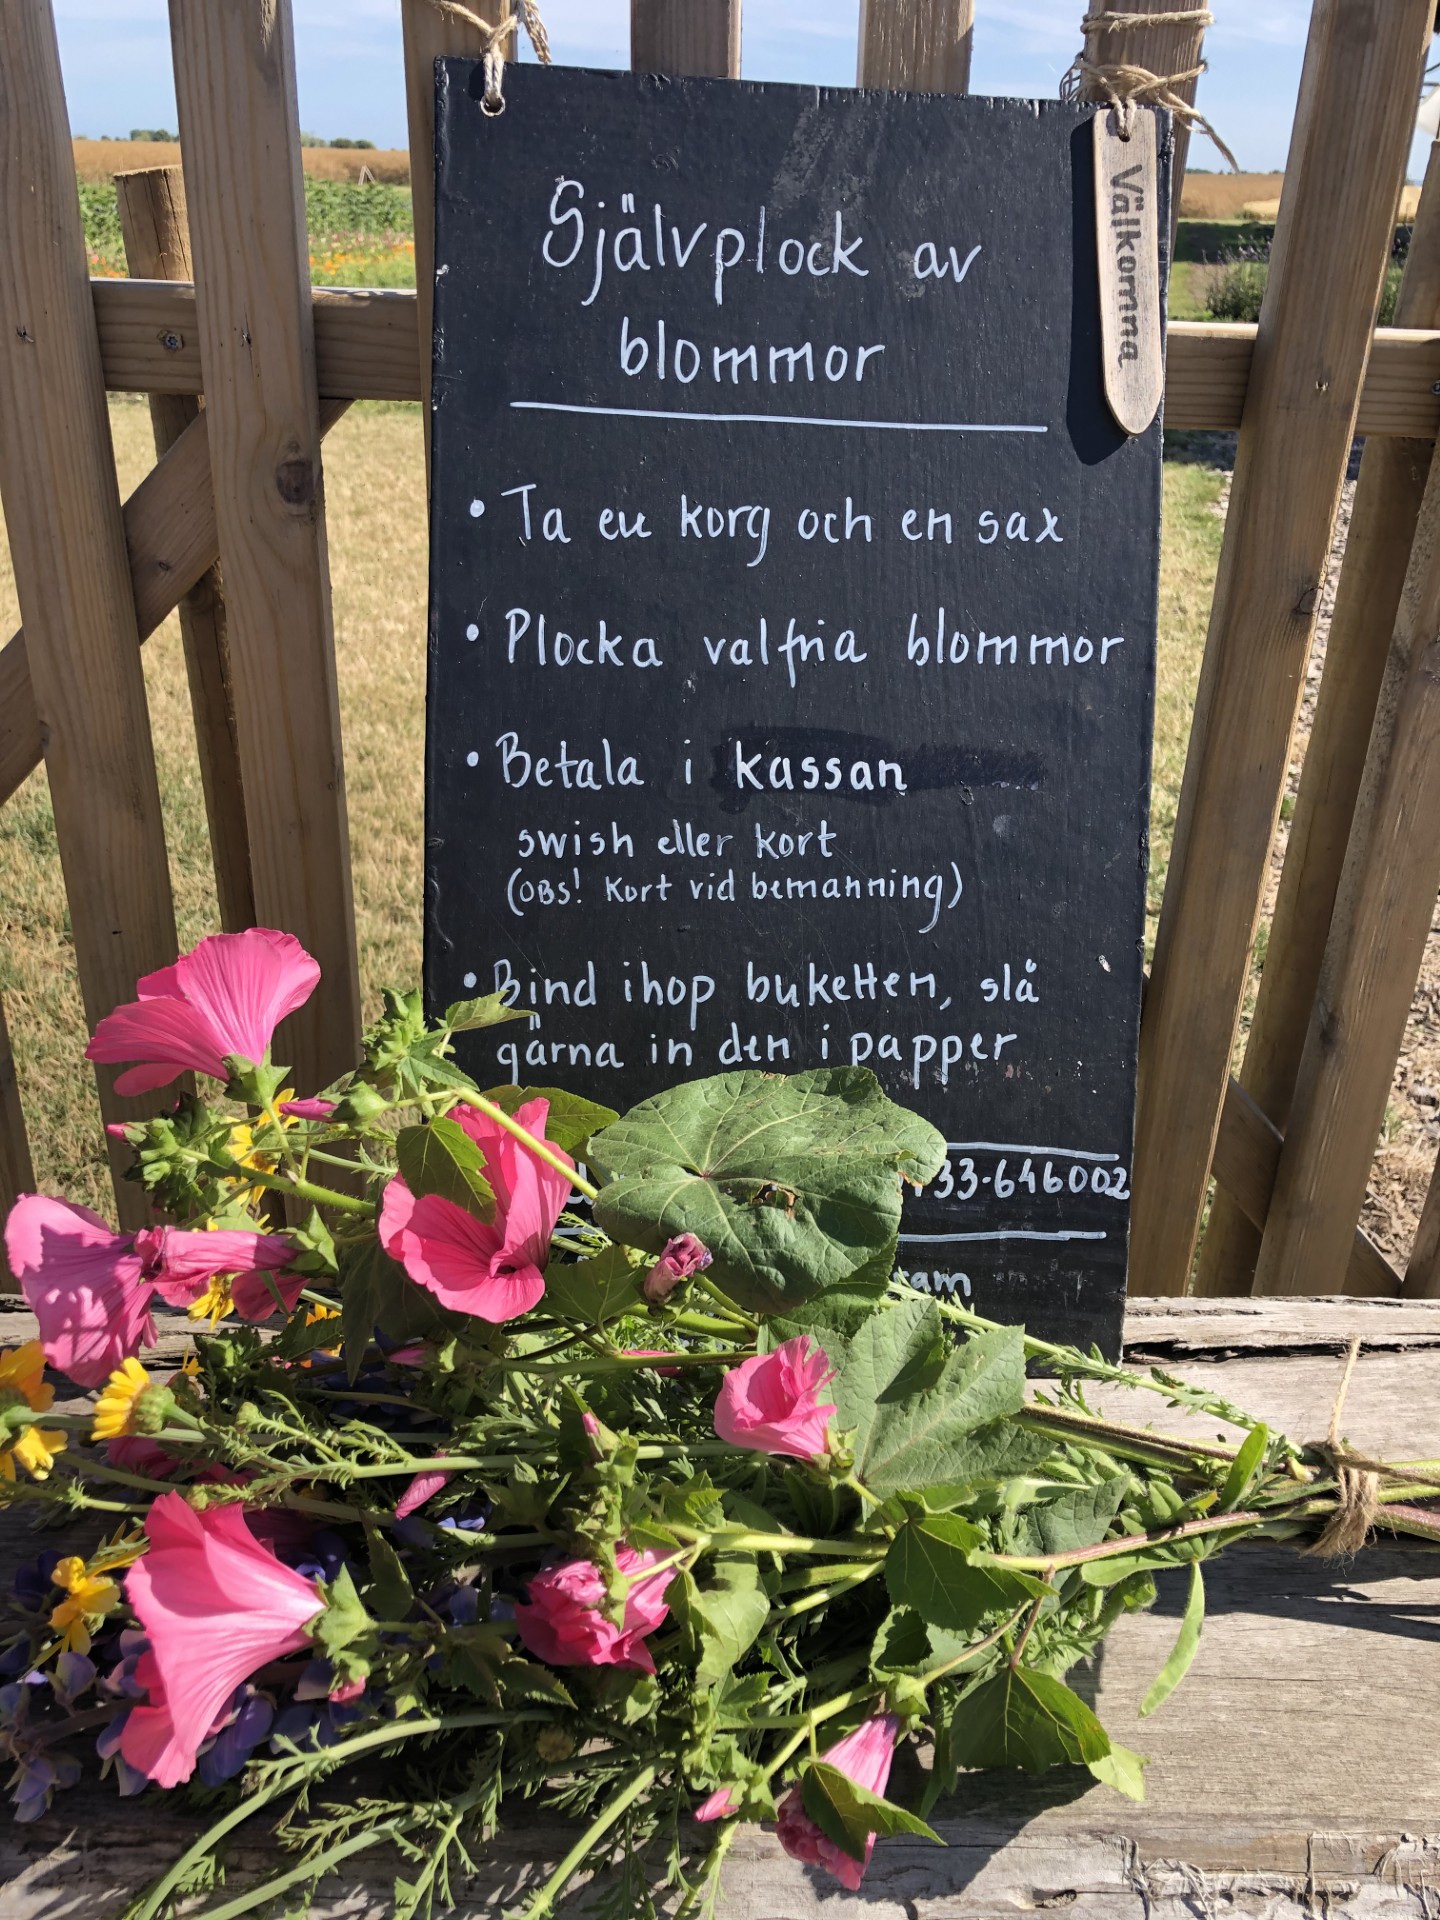 Självplock av
blommor
Välkomna
• Ta en korg och en sax
• Plocka valfria blommor
• Betala i kassan
swish eller kort
(OBS! Kort vid bemanning)
• Bind ihop buketten, slå
gärna in den i papper
33-646002